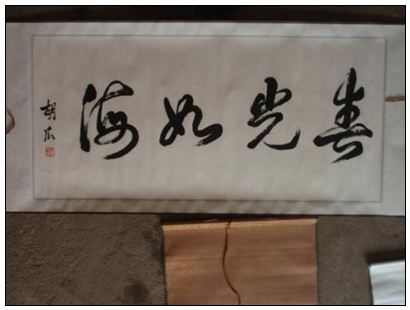 春光如海
胡瓜